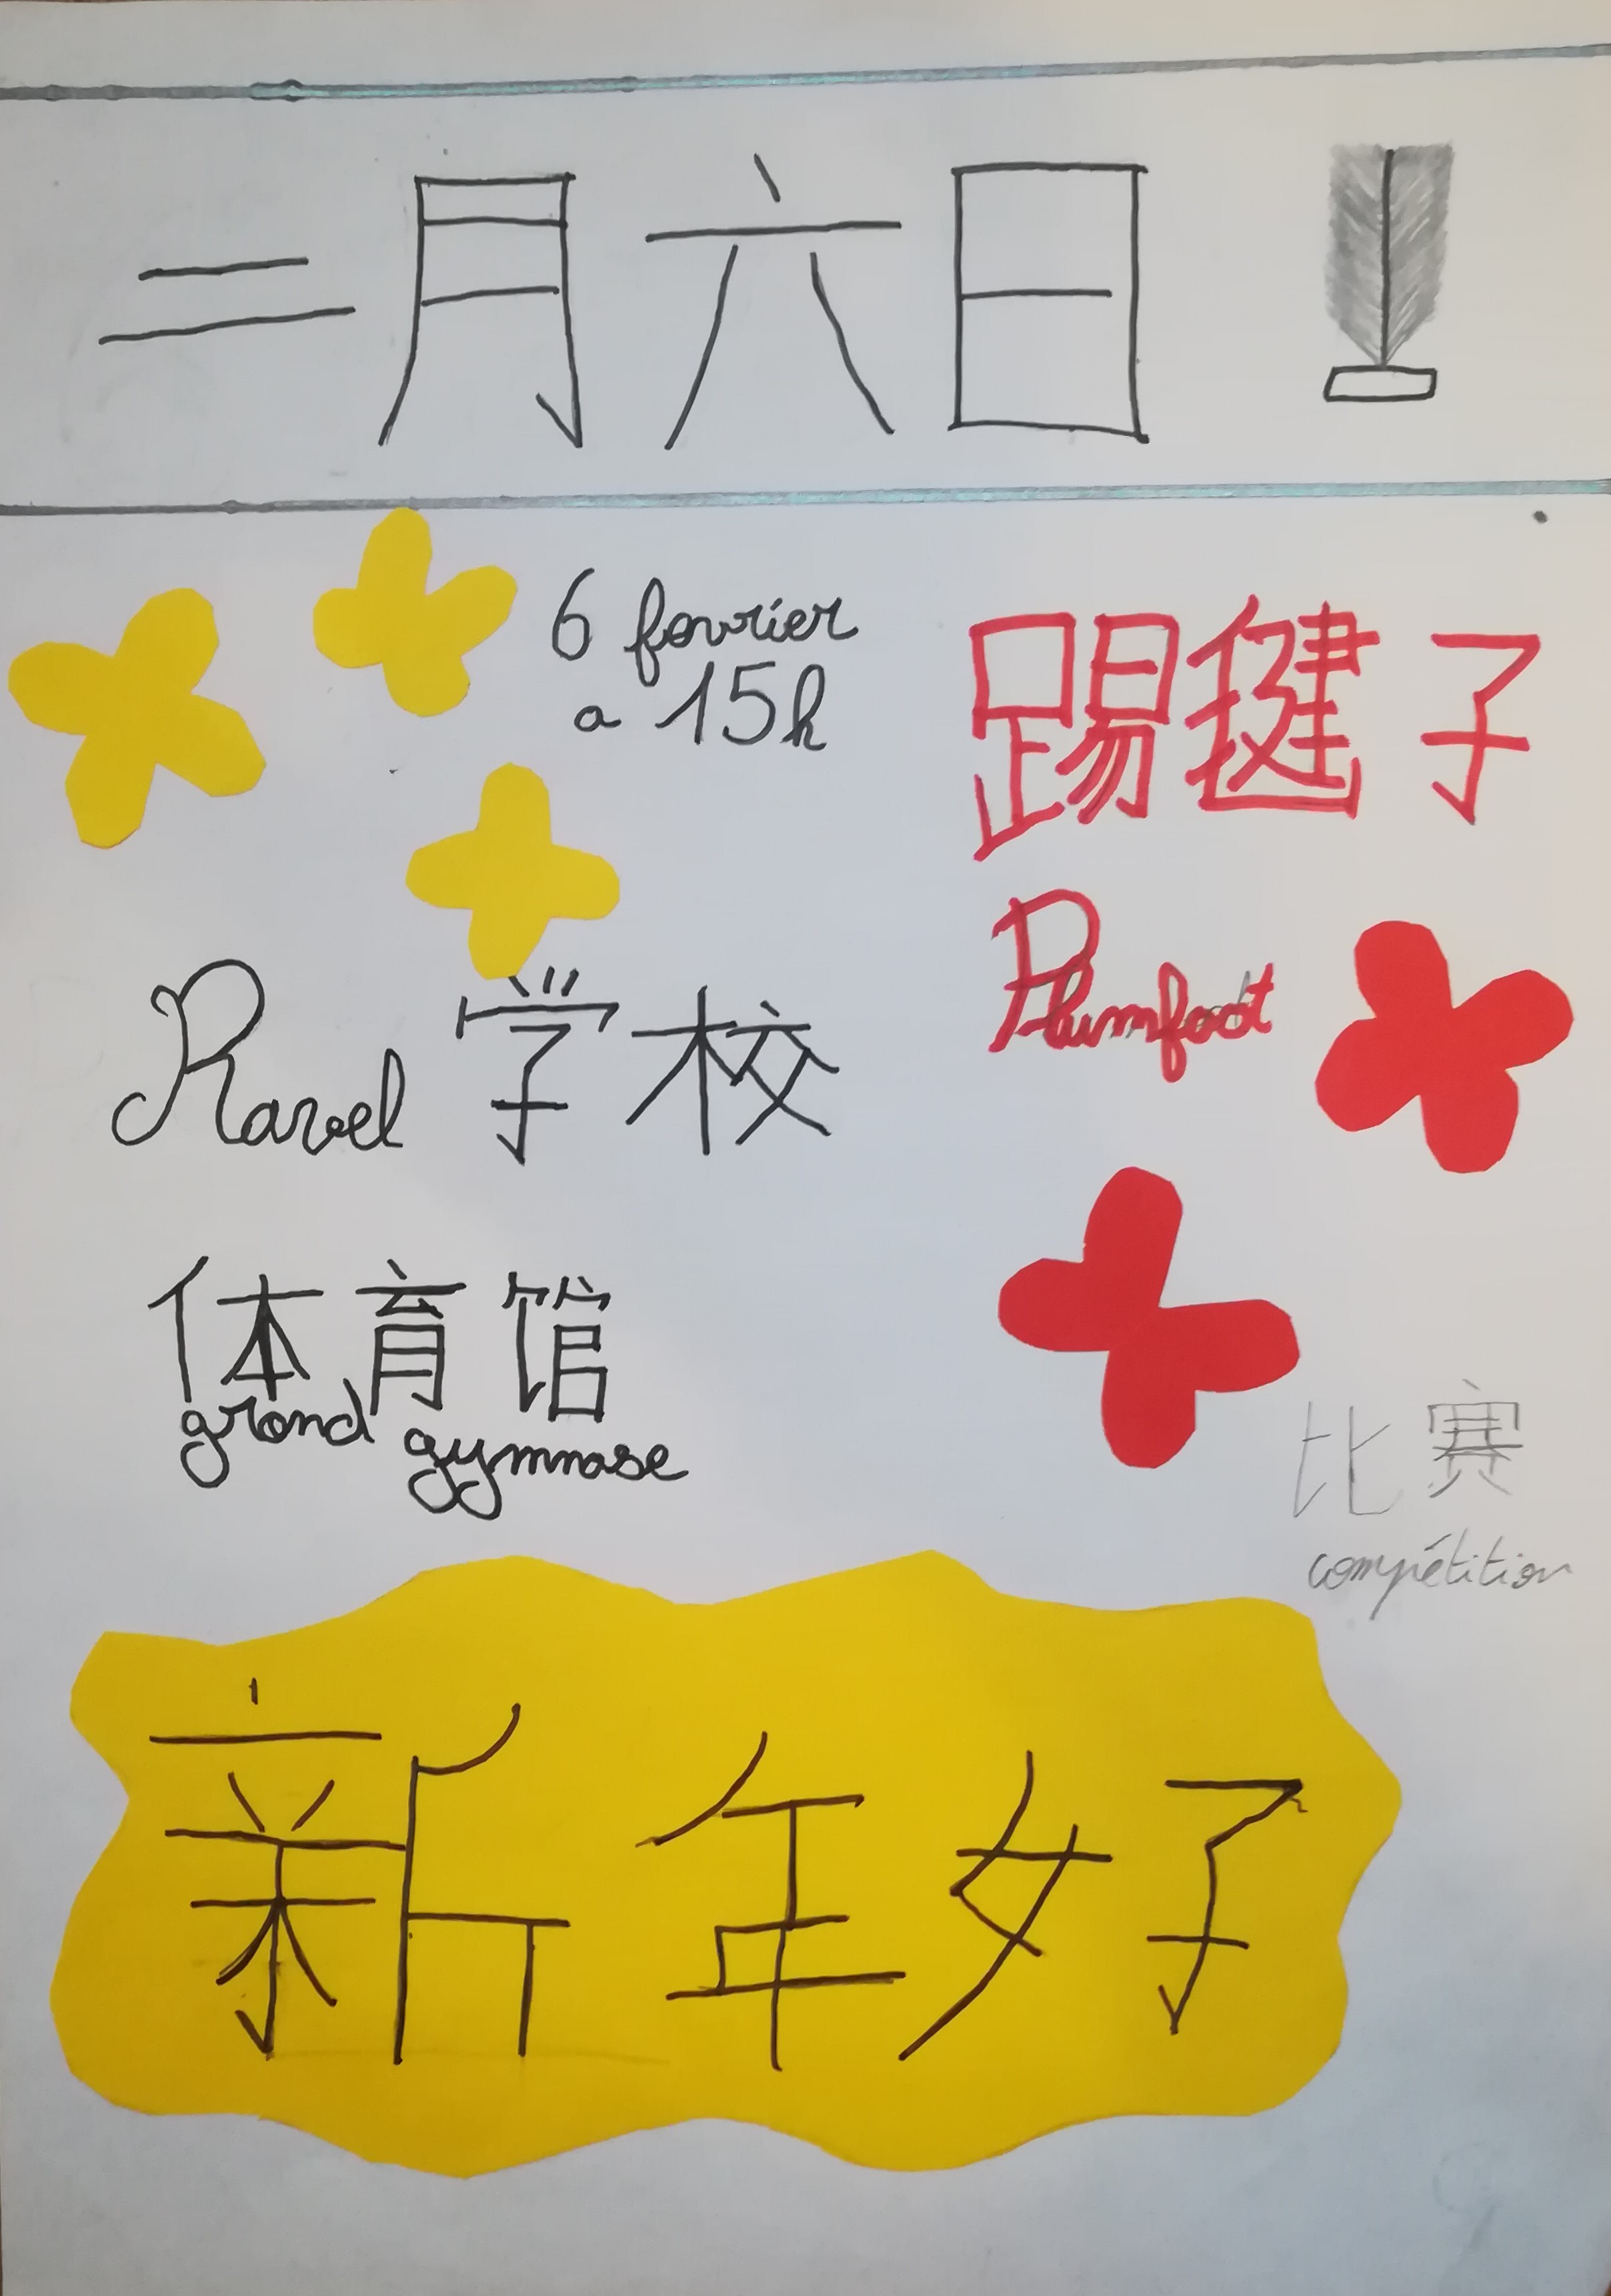 二月六日
6 fevrier
a 15h
踢毽子
Plumfoot
Ravel 学校
体育馆
grand gymnase
比赛
compétition
新年好